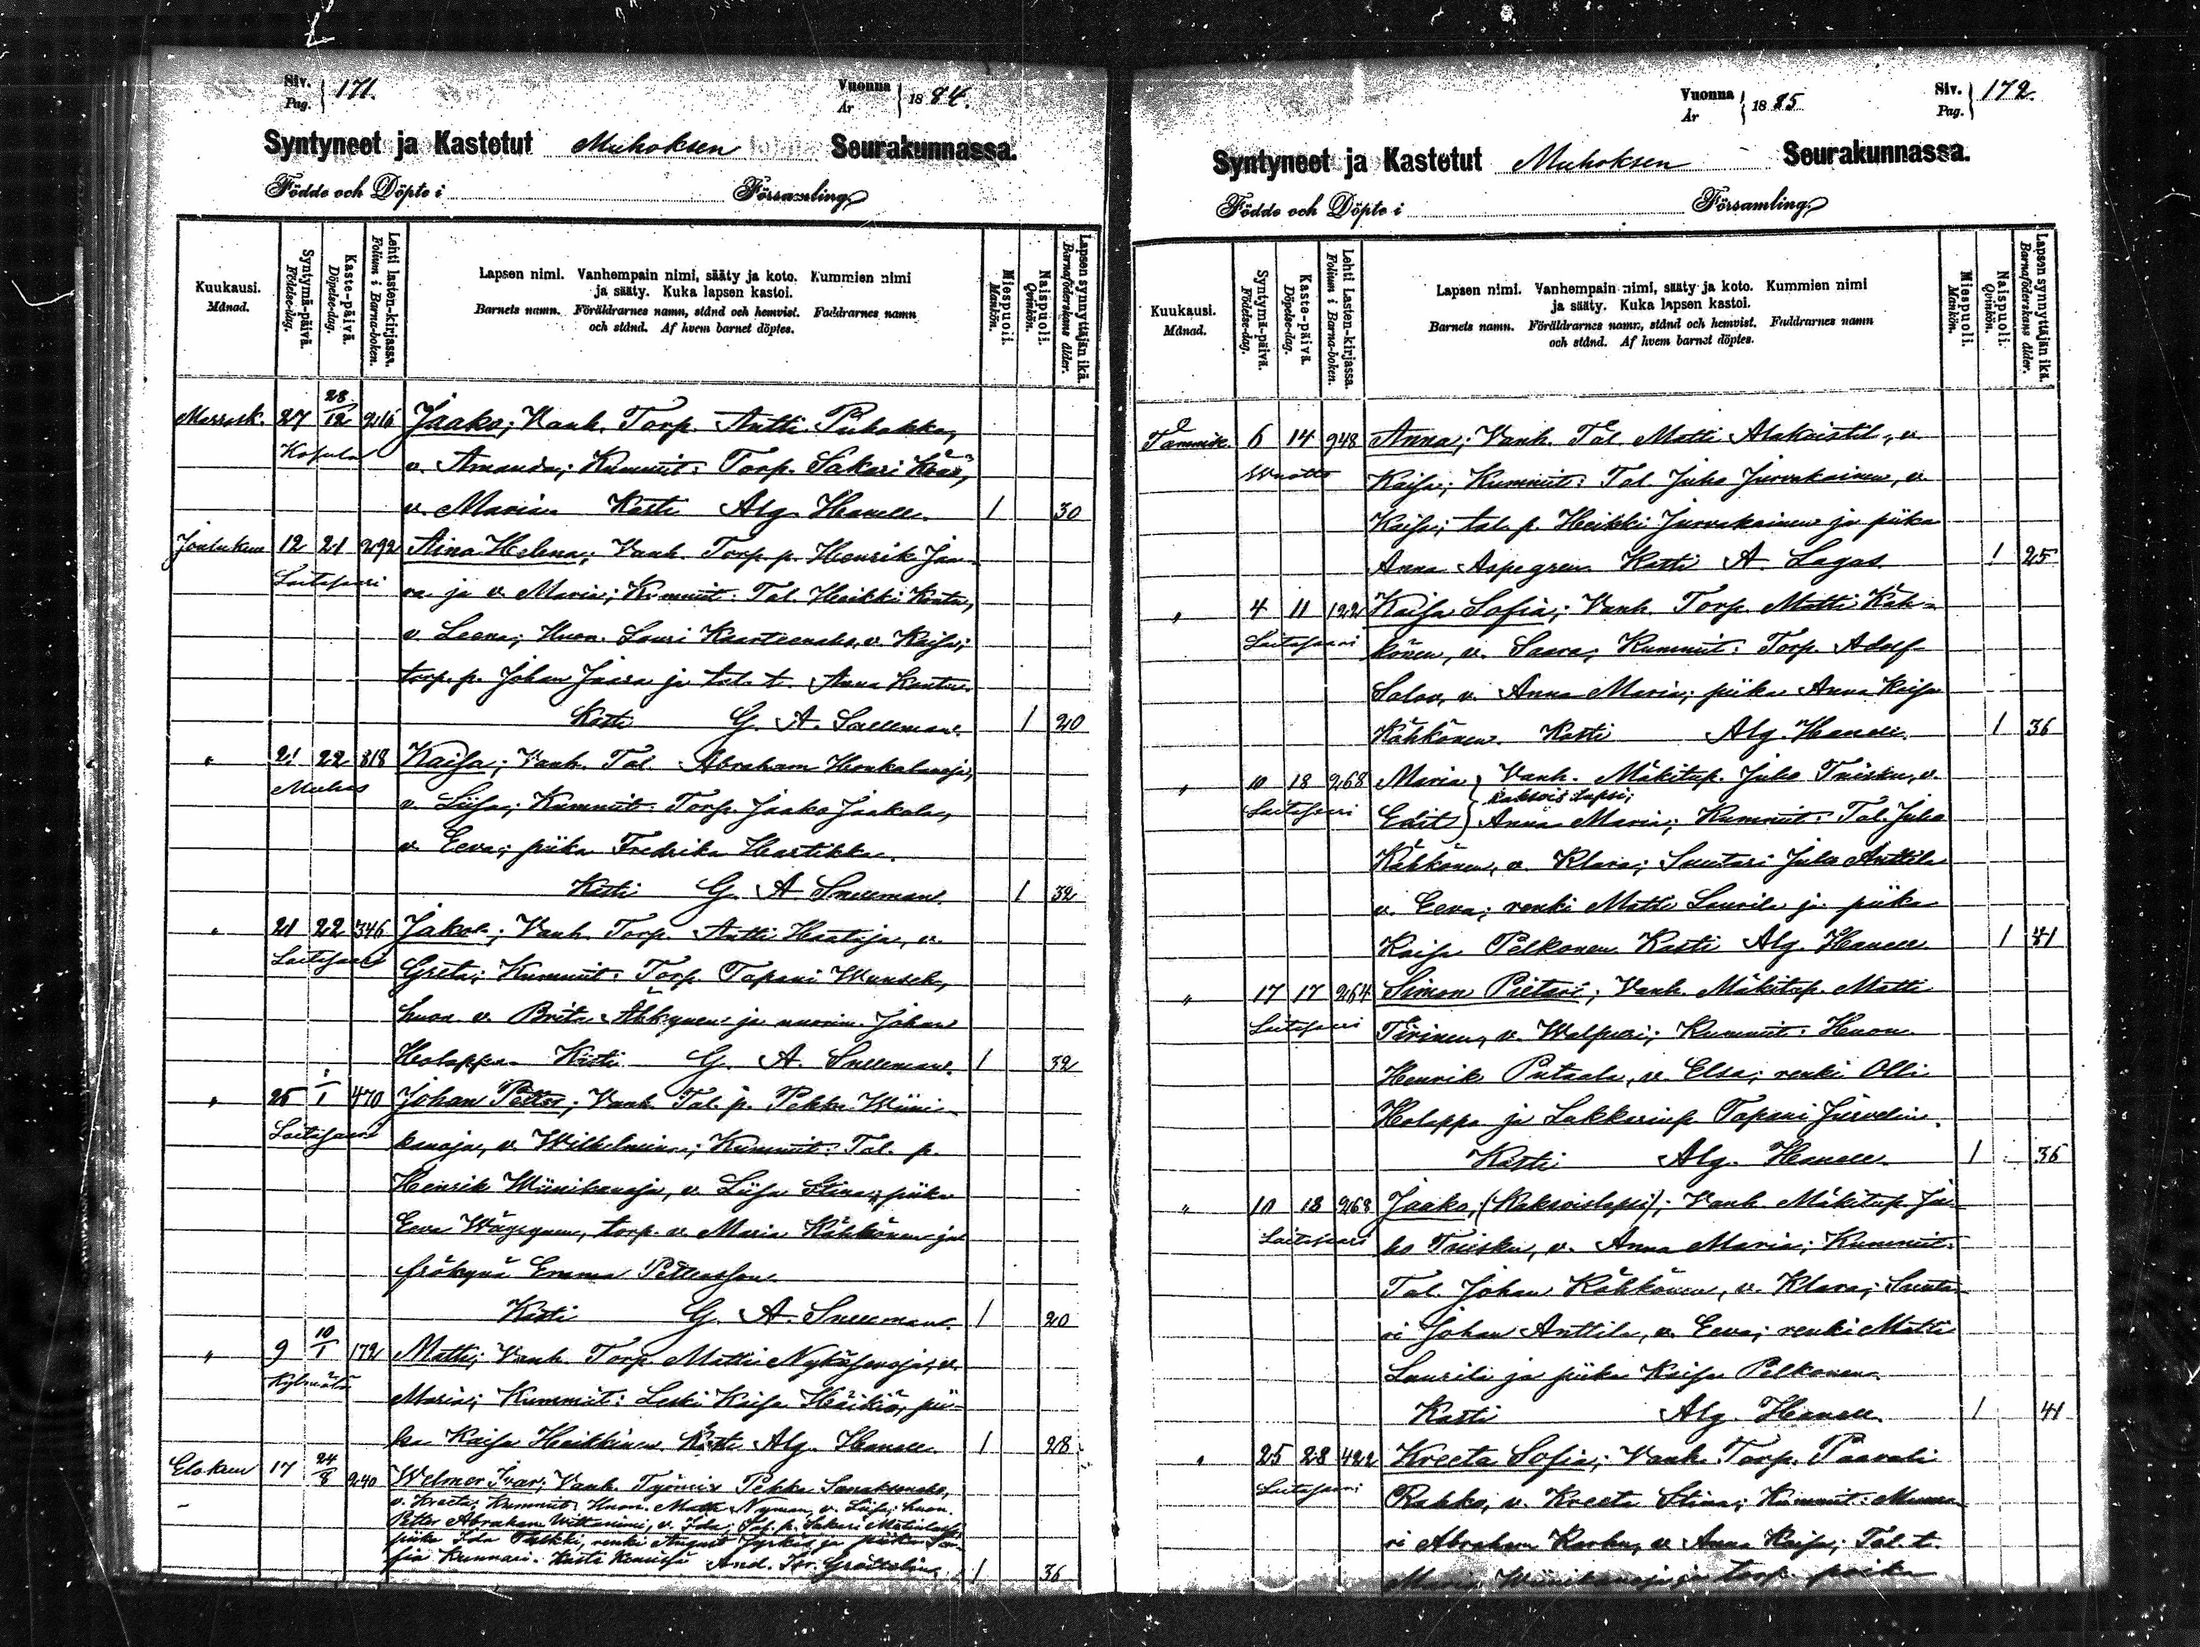 Siv. Pag. 171.
Vuonna År 1884.
Syntyneet ja Kastetut Muhoksen Seurakunnassa.
Födde och Döpte i Församling.
Kuukausi. Månad.
Syntymä-päivä. Födelse-dag.
Kaste-päivä. Döpelse-dag.
Lehti lasten-kirjassa. Folium i Barna-boken.
Lapsen nimi. Vanhempain nimi, sääty ja koto. Kummien nimi
ja sääty. Kuka lapsen kastoi.
Barnets namn. Föräldrarnes namn, stånd och hemvist. Faddrarnes namn
och stånd. Af hvem barnet döptes.
Miespuoli. Mankön.
Naispuoli. Qvinkön.
Lapsen synnyttäjän ikä. Barnaföderskans ålder.
Marrask. 27 28/12 216 Jaako; Vanh. Torp. Antti Puhakka,
v. Amanda; Kummit: Torp. Sakari
v. Maria Kasti Alg. Hanell. 1 30
Joulukuu 12 21 292 Aina Helena; Vanh. Torp. p. Henrik Jaa-
Laitasaari ra ja v. Maria; Kummit: Tal. Heikki
v. Leena; Huon. Lauri v. Kaisa;
torp. p. Johan Jaara ja tal. t. Anna
Kasti G. A. Snellman. 1 20
" 21 22 318 Kaisa; Vanh. Tal. Abraham Honkalanoja,
Muhos v. Liisa; Kummit: Torp. Jaako Jaakola,
v. Eeva; piika Fredrika Hartikka.
Kasti G. A. Snellman. 1 32
" 21 22 346 Jakob; Vanh. Torp. Antti Haataja, v.
Laitasaari Greta; Kummit: Torp. Tapani
huon. v. Brita ja nuorim. Johan
Holappa. Kasti G. A. Snellman. 1 32
" 25 1/1 470 Johan Petter; Vanh. Tal. p. Pekka Wiini-
Laitasaari kanoja, v. Wilhelmina; Kummit: Tal. p.
Henrik Wiinikanoja, v. Liisa Stina; piika
Eeva torp. v. Maria Kähkönen ja
fröökynä Emma Pettersson.
Kasti G. A. Snellman. 1 20
" 9 10/1 172 Matti; Vanh. Torp. Matti v.
Kylmälä Maria; Kummit: Leski Kaisa Häikiö, pii-
ka Kaisa Heikkinen Kasti Alg. Hanell 1 28
Elokuu 17 24/8 240 Welmer Ivar; Vanh. Työmies Pekka
v. Kreeta; Kummit: Huon. Matti Nyman, v. Liisa; huon.
Petter Abraham v. Ida; Tal. p. Sakari
piika Ida renki August ja piika So-
fia Kunnari. Kasti And. 1 36
Vuonna År 1885
Siv. Pag. 172.
Syntyneet ja Kastetut Muhoksen Seurakunnassa.
Födde och Döpte i Församling.
Kuukausi. Månad.
Syntymä-päivä. Födelse-dag.
Kaste-päivä. Döpelse-dag.
Lehti Lasten-kirjassa. Folium i Barna-boken.
Lapsen nimi. Vanhempain nimi, sääty ja koto. Kummien nimi
ja sääty. Kuka lapsen kastoi.
Barnets namn. Föräldrarnes namn, stånd och hemvist. Faddrarnes namn
och stånd. Af hvem barnet döptes.
Miespuoli. Mankön.
Naispuoli. Qvinkön.
Lapsen synnyttäjän ikä. Barnaföderskans ålder.
Tammik. 6 14 948 Anna; Vanh. Tal. Matti v.
Kaisa; Kummit: Tal. Juho Jurvakainen, v.
Kaisa; tal. p. Heikki Jurvakainen ja piika
Anna Aspegren Kasti A. Lagus. 1 25
" 4 11 122 Kaisa Sofia; Vanh. Torp. Matti Käh-
Laitasaari könen, v. Saara; Kummit: Torp. Adolf
Salo, v. Anna Maria; piika Anna Kaisa
Kähkönen. Kasti Alg. Hanell. 1 36
" 10 18 268 Maria Vanh. Mäkitup. Juho v.
kaksois lapsi;
Laitasaari Edit Anna Maria; Kummit: Tal. Juho
Kähkönen, v. Klara; Suutari Juho Anttila
v. Eeva; renki Matti Laurila ja piika
Kaisa Pelkonen Kasti Alg. Hanell 1 41
" 17 17 264 Simon Pietari; Vanh. Mäkitup. Matti
Laitasaari v. Walpuri; Kummit: Huon.
Henrik v. Elsa; renki Olli
Holappa ja Tapani
Kasti Alg. Hanell. 1 36
" 10 18 268 Jaako, (Kaksoislapsi); Vanh. Mäkitup. Ju-
Laitasaari ho v. Anna Maria; Kummit:
Tal. Johan Kähkönen, v. Klara; Suuta-
ri Johan Anttila, v. Eeva; renki Matti
Laurila ja piika Kaisa Pelkonen
Kasti Alg. Hanell. 1 41
" 25 28 422 Kreeta Sofia; Vanh. Torp. Paavali
Laitasaari Rahko, v. Kreeta Stina; Kummit: Muura-
ri Abraham Karhu, v. Anna Kaisa; Tal. t.
Maria Wiinikanoja ja torp. poika